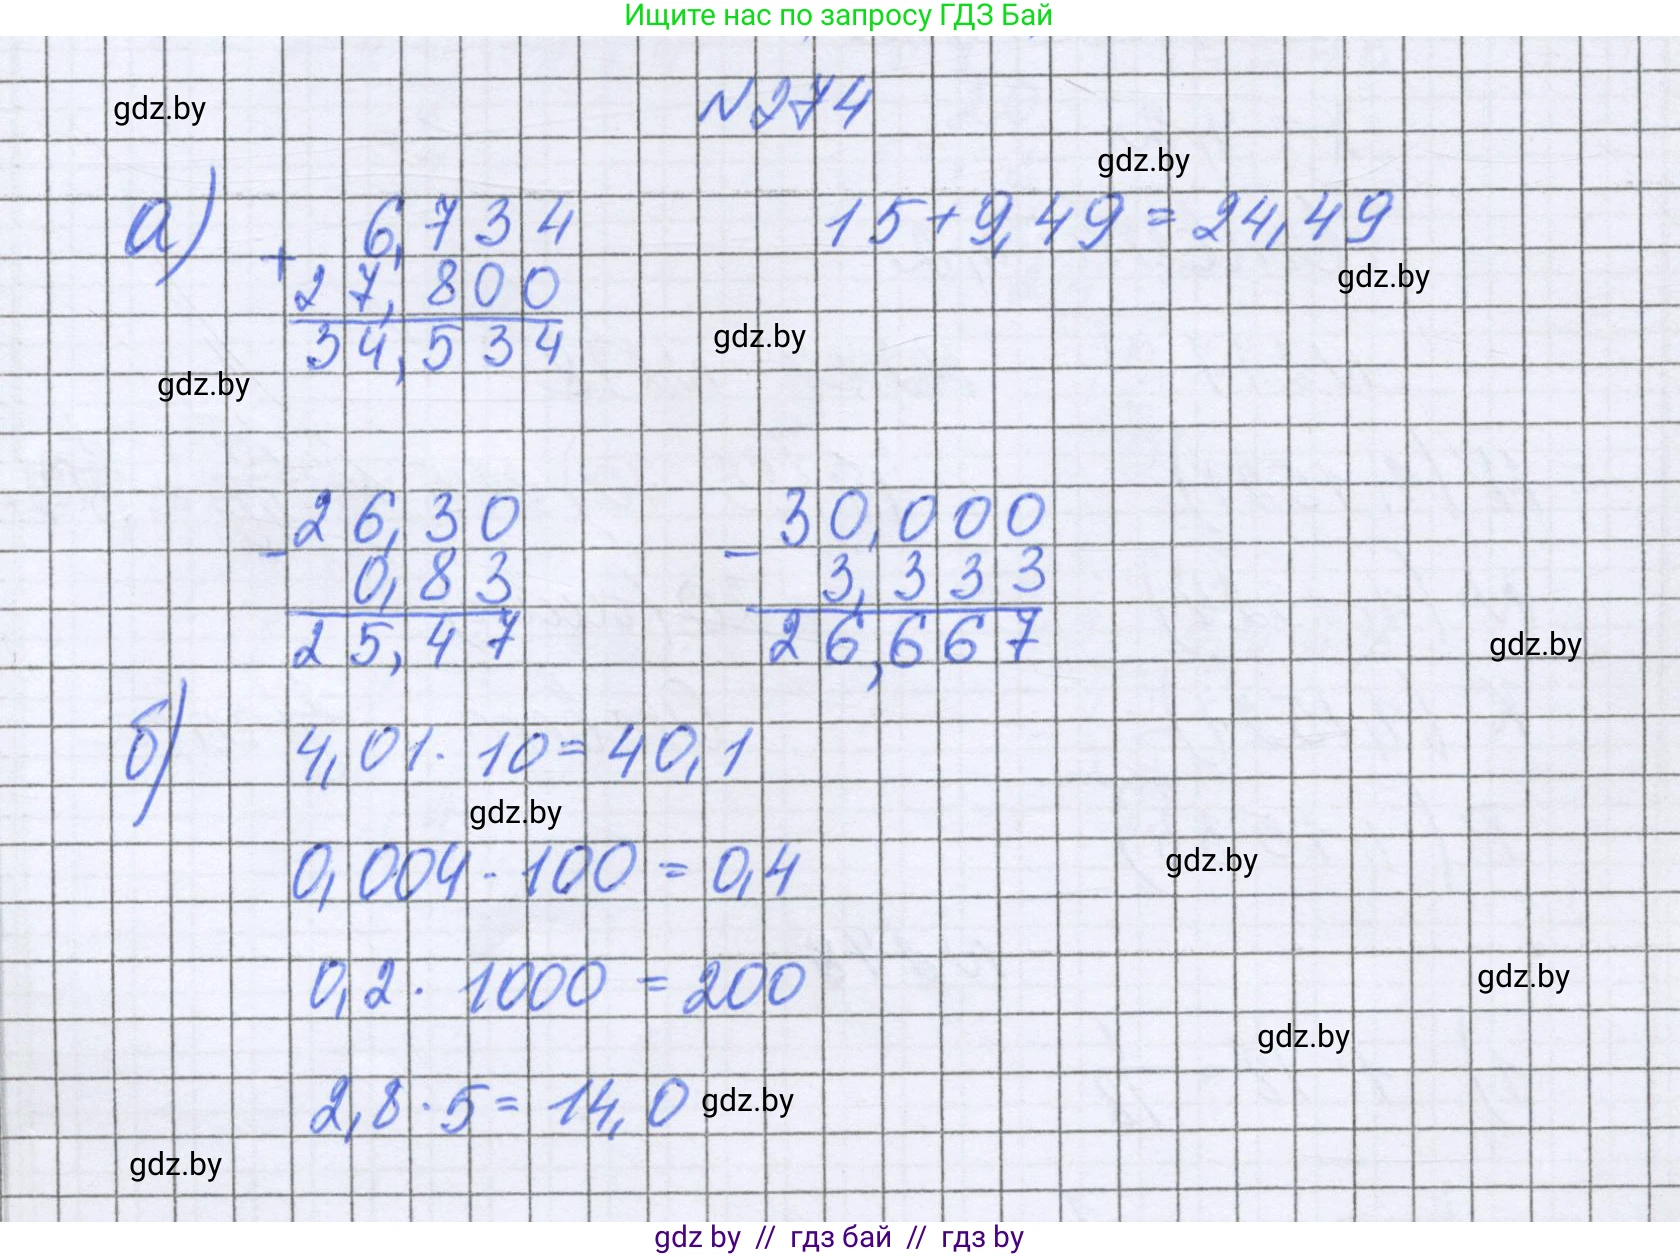 Ищите нас по запросу ГДЗ Бай
N274
gdz.by
gdz.by
а) + 6,734
27,800
34,534
15 + 9,49 = 24,49
gdz.by
gdz.by
gdz.by
- 26,30
0,83
25,47
- 30,000
3,333
26,667
gdz.by
б) 4,01 · 10 = 40,1
gdz.by
0,004 · 100 = 0,4
gdz.by
0,2 · 1000 = 200
gdz.by
gdz.by
2,8 · 5 = 14,0
gdz.by
gdz.by
gdz by // гдз бай // гдз by